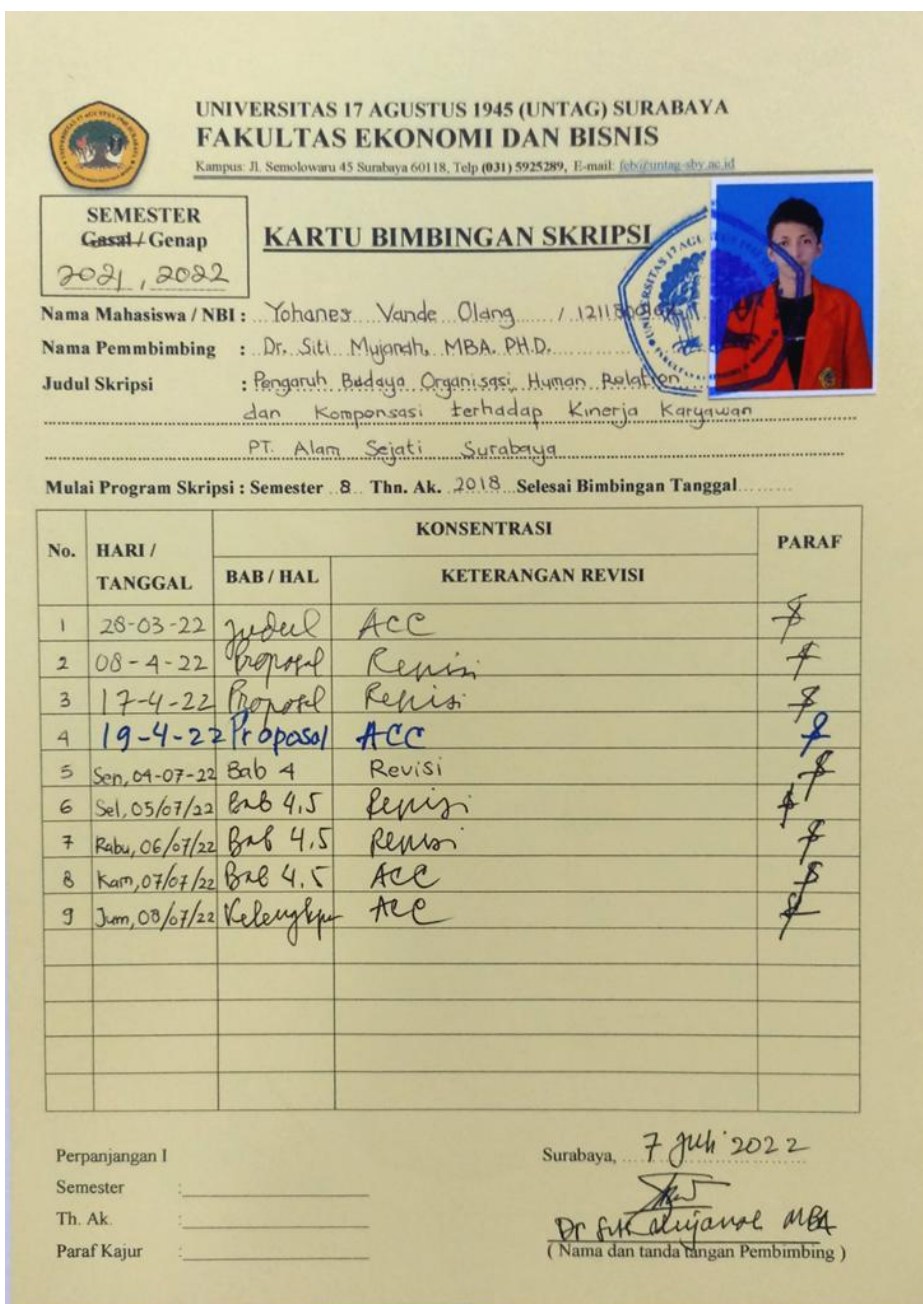 UNIVERSITAS 17 AGUSTUS 1945 (UNTAG) SURABAYA
FAKULTAS EKONOMI DAN BISNIS
Kampus: Jl. Semolowaru 45 Surabaya 60118, Telp (031) 5925289, E-mail: feb@untag-sby.ac.id
SEMESTER
Gasal / Genap
2021 , 2022
KARTU BIMBINGAN SKRIPSI
Nama Mahasiswa / NBI : Yohanes Vande Olang /
Nama Pemmbimbing : Dr. Siti Mujanah, MBA. PH.D.
Judul Skripsi : Pengaruh Budaya Organisasi, Human Relation
dan Kompensasi terhadap Kinerja Karyawan
PT. Alam Sejati Surabaya
Mulai Program Skripsi : Semester 8 Thn. Ak. 2018 Selesai Bimbingan Tanggal
No. HARI / TANGGAL KONSENTRASI PARAF
BAB / HAL KETERANGAN REVISI
1 28-03-22 Judul ACC
2 08-4-22 Proposal Revisi
3 17-4-22 Proposal Revisi
4 19-4-22 Proposal ACC
5 Sen, 04-07-22 Bab 4 Revisi
6 Sel, 05/07/22 Bab 4,5 Revisi
7 Rabu, 06/07/22 Bab 4,5 Revisi
8 Kam, 07/07/22 Bab 4,5 ACC
9 Jum, 08/07/22 ACC
Perpanjangan I
Semester :
Th. Ak. :
Paraf Kajur :
Surabaya, 7 Juli 2022
Dr Siti Mujanah MBA
( Nama dan tanda tangan Pembimbing )